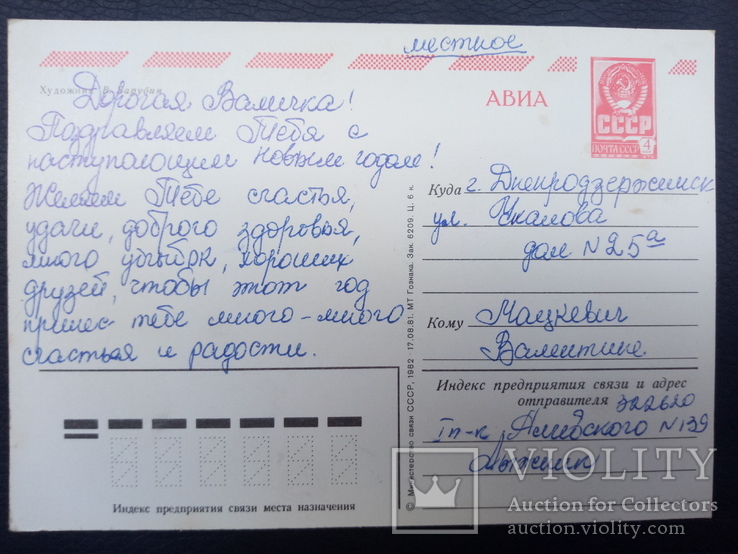 местное
Художник В. Зарубин
АВИА
СССР
ПОЧТА СССР 4
Дорогая Валичка!
Поздравляем Тебя с
наступающим новым годом!
Желаем Тебе счастья,
удачи, доброго здоровья,
много улыбок, хороших
друзей, чтобы этот год
принес тебе много-много
счастья и радости.
Куда г. Днепродзержинск
ул. Чкалова
дом N 25а
Кому Мацкевич
Валентине
Индекс предприятия связи и адрес
отправителя 322620
N 139
© Министерство связи СССР, 1982 · 17.08.81. МТ Гознака. Зак. 6209. Ц. 5 к.
Индекс предприятия связи места назначения
VIOLITY
Auction for Collectors
auction.violity.com